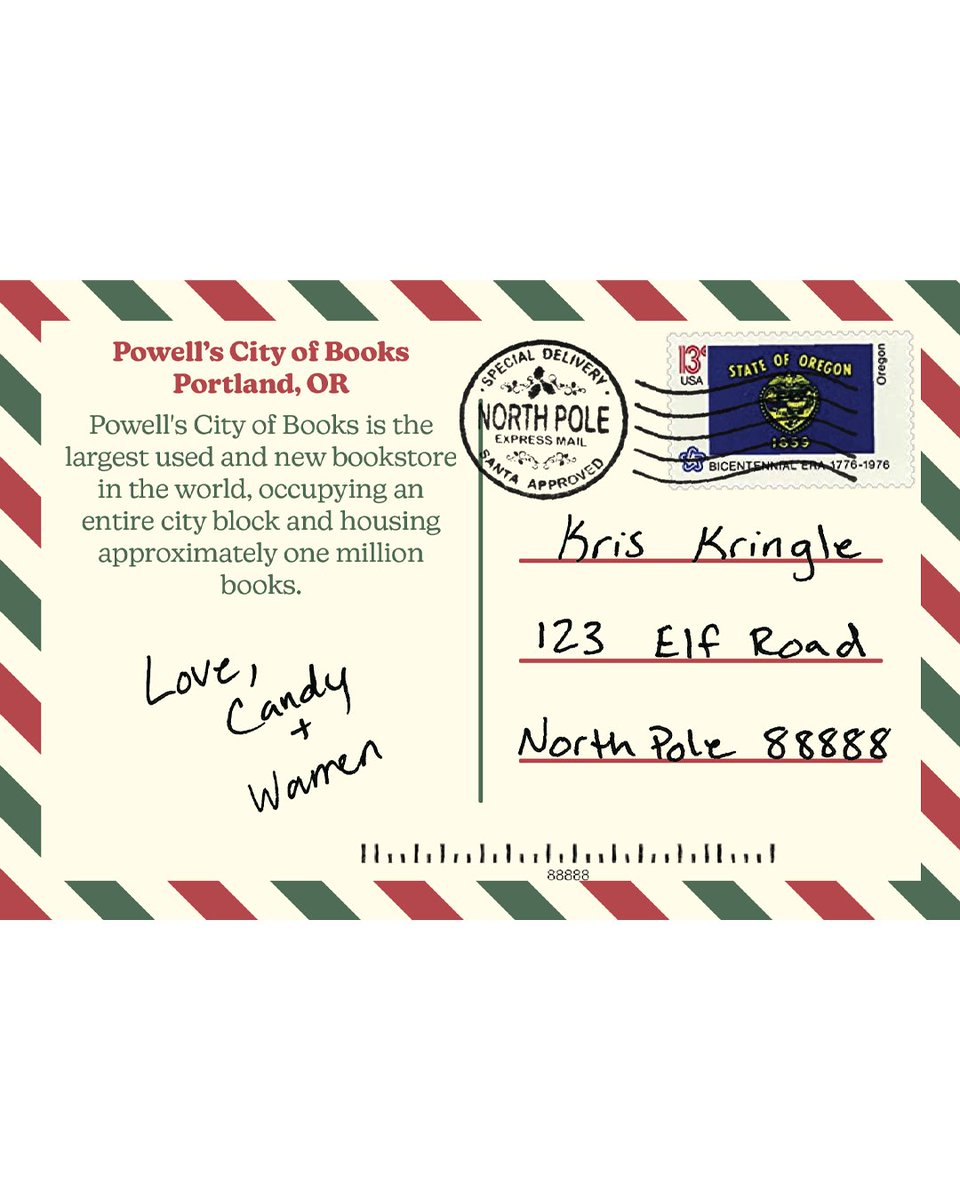 Powell’s City of Books
Portland, OR
Powell's City of Books is the
largest used and new bookstore
in the world, occupying an
entire city block and housing
approximately one million
books.
Love,
Candy
+
Warren
SPECIAL DELIVERY
NORTH POLE
EXPRESS MAIL
SANTA APPROVED
13c
USA
STATE OF OREGON
1859
Oregon
BICENTENNIAL ERA 1776-1976
Kris Kringle
123 Elf Road
North Pole 88888
88888